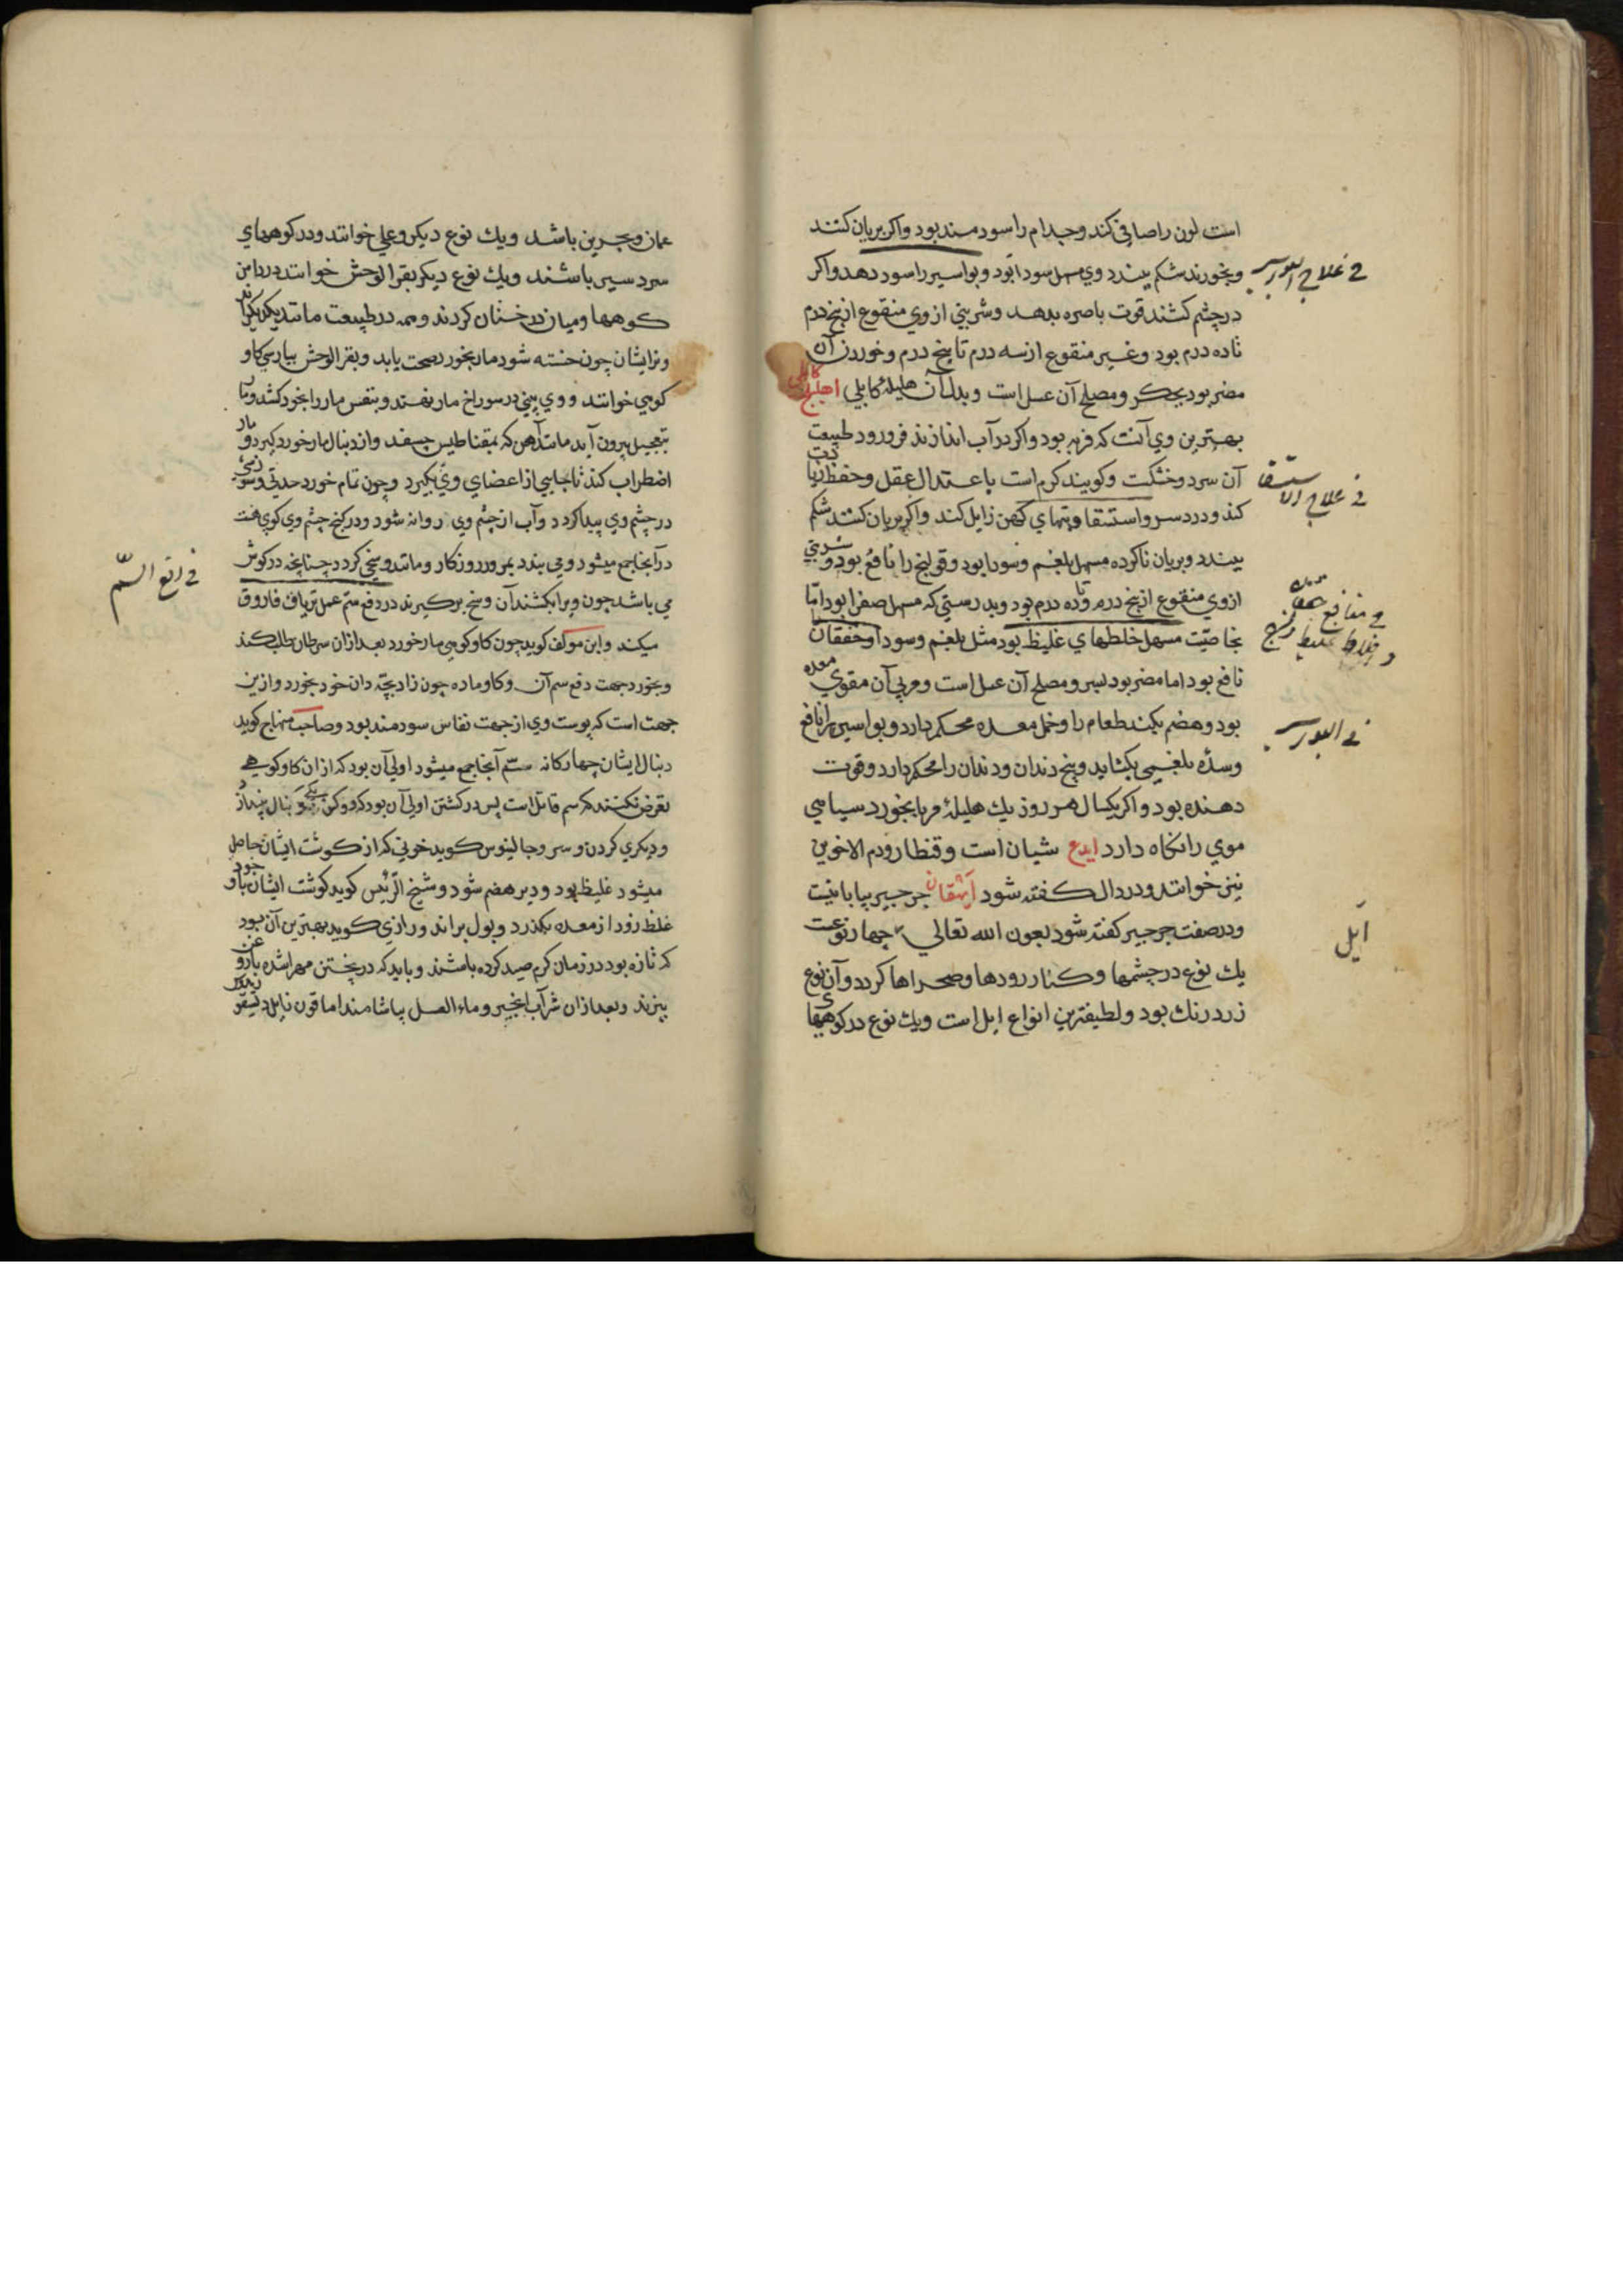 است لون را صافی کند و جدام را سودمند بود و اکر بریان کنند
و بخورند شکم ببندد وی مسهل سودا بود و بواسیر را سود دهد و اکر
در چشم کشند قوت باصره بدهد و شربتی از وی منقوع از پنج درم
تا ده درم بود و غیر منقوع از سه درم تا پنج درم و خوردن آن
مضر بود بجکر و مصلح آن عسل است و بدل آن هلیله کابلی اهلیلج کابلی
بهترین وی آنست که فربه بود و اکر در آب اندازند فرو رود طبیعت
آن سرد و خشکست و کویند کرم است باعتدال عقل و حفظ زیادت
کند و درد سر و استسقا و تبهای کهن زایل کند و اکر بریان کنند شکم
ببندد و بریان ناکرده مسهل بلغم و سودا بود و قولنج را نافع بود و شربتی
از وی منقوع از پنج درم تا ده درم بود و بدرستی که مسهل صفرا بود اما
بخاصیت مسهل خلطهای غلیظ بود مثل بلغم و سودا و خفقان را
نافع بود اما مضر بود بسر و مصلح آن عسل است و مربی آن مقوی معده
بود و هضم بکند طعام را و خمل معده محکم دارد و بواسیر را نافع
و سدّه بلغمی بکشاید و بیخ دندان و دندان را محکم دارد و قوت
دهنده بود و اکر یکسال هر روز یک هلیلهٔ مربا بخورد سیاهی
موی را نکاه دارد ایدع شیان است و قنطار و دم الاخوین
نیز خوانند و در دال کفته شود ایهقان جرجیر بیابانیست
و در صفت جرجیر کفته شود بعون الله تعالی چهار نوعست
یک نوع در چشمها و کنار رودها و صحراها کردد و آن نوع
زرد رنک بود و لطیفترین انواع ایل است و یک نوع در کوههای
فی علاج البواسیر
فی علاج الاستسقا
فی منافع
و اخلاط غلیظ
فی البواسیر
ایل
عمان و بحرین باشد و یک نوع دیکر وعلی خوانند و در کوههای
سردسیر باشند و یک نوع دیکر بقر الوحش خوانند در دامن
کوهها و میان درختان کردند و همه در طبیعت مانند یکدیکراند
و نر ایشان چون خسته شود مار بخورد صحت یابد و بقر الوحش بپارسی کاو
کوهی خوانند و وی بینی در سوراخ مار نهند و بنفس مار را بخود کشد و تا
بتعجیل بیرون آید مانند آهن که بمقناطیس چسفد و از دنبال مار خورد کیرد و مار
اضطراب کند تا جایی از اعضای وی بکیرد و چون تمام خورد حدتی و سوزشی
در چشم وی پیدا کردد و آب از چشم وی روانه شود و در کنج چشم وی کوی هست
در آنجا جمع میشود و می بندد بمرور روزکار و مانند وسخی کردد چنانچه در کوش
می باشد چون ویرا بکشند آن وسخ برکیرند در دفع سم عمل تریاق فاروق
میکند و ابن مولف کوید چون کاو کوهی مار خورد بعد از آن سرطان طلب کند
و بخورد جهت دفع سم آن و کاو ماده چون زاد بچه دان خود بخورد و ازین
جهت است که پوست وی از جهت نفاس سودمند بود و صاحب منهاج کوید
دنبال ایشان چهارکانه سم آنجا جمع میشود اولی آن بود که از آن کاو کوهی
تعرض نکنند که سم قاتل است پس در کشتن اولی آن بود که دو کس یکی دنبال بیندازد
و دیکری کردن و سر و جالینوس کوید خونی که از کوشت ایشان حاصل
میشود غلیظ بود و دیر هضم شود و شیخ الرئیس کوید کوشت ایشان با وجود
غلظ زود از معده بکذرد و بول براند و رازی کوید بهترین آن بود
که تازه بود در زمان کرم صید کرده باشند و باید که در پختن مهرا شده با روغن
بپزند و بعد از آن شراب انجیر و ماء العسل بیاشامند اما قرن
فی دافع السمّ